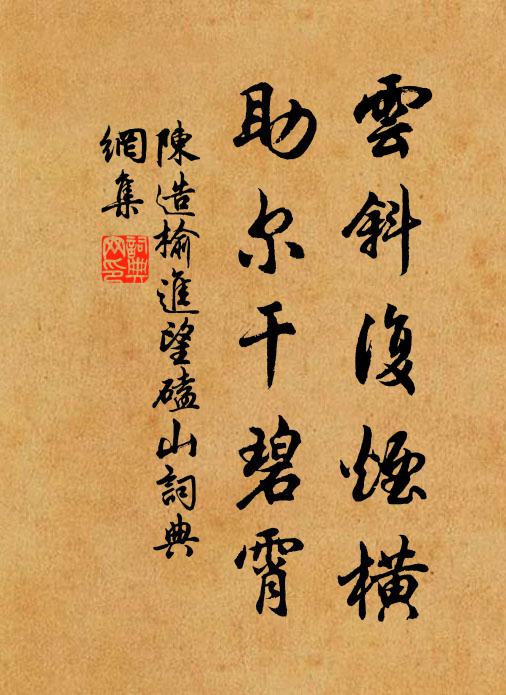 雲斜復煙橫
助尔干碧霄
陳造榆進望磕山詞典
網集
詞典網印